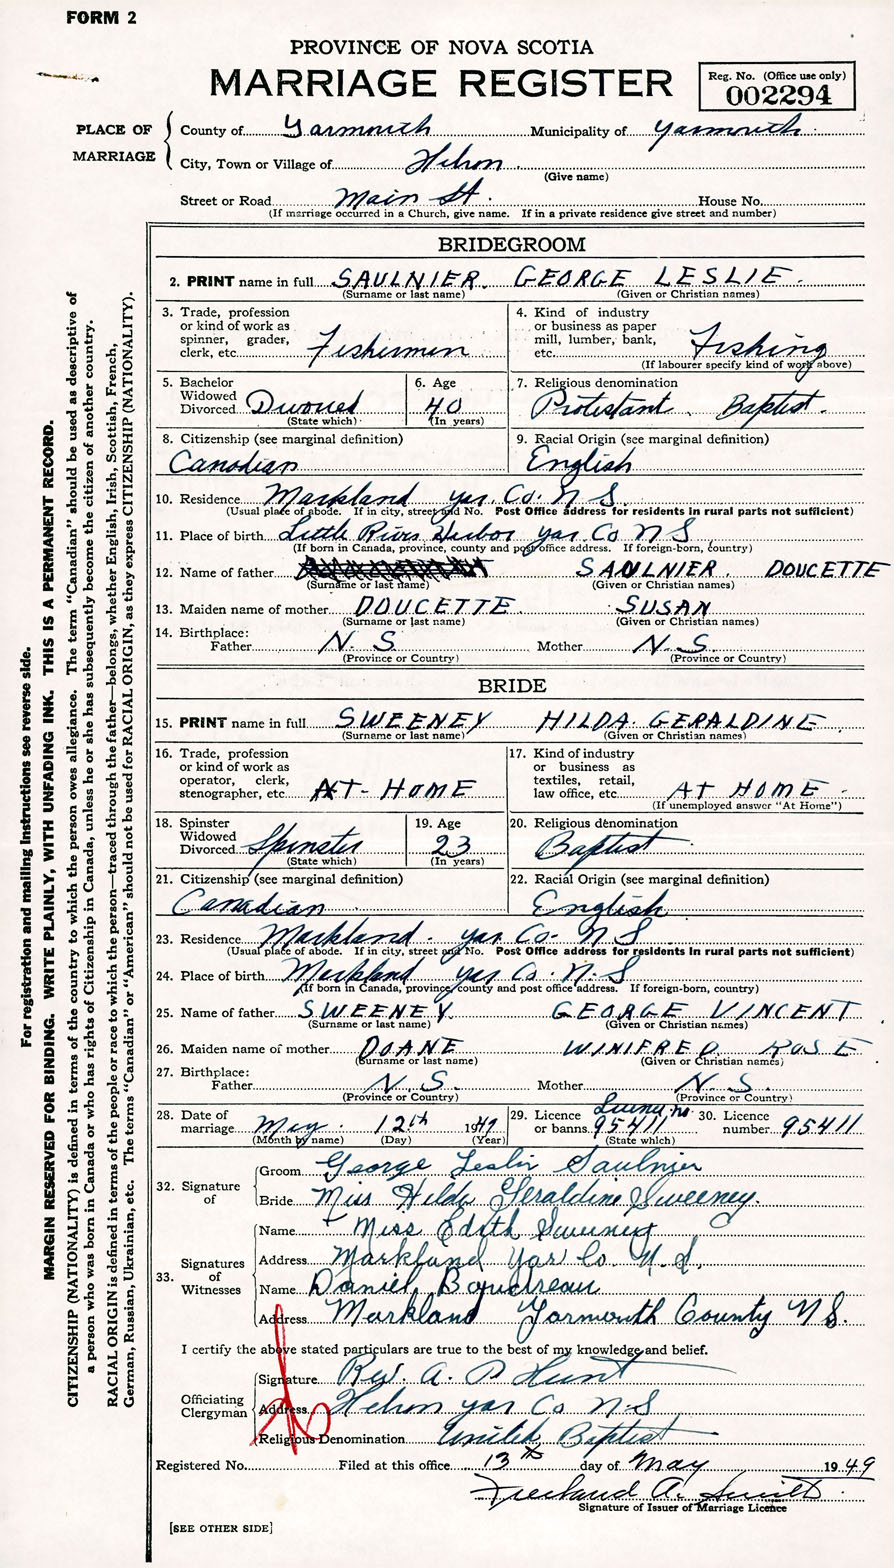 FORM 2
PROVINCE OF NOVA SCOTIA
MARRIAGE REGISTER
Reg. No. (Office use only)
002294
PLACE OF MARRIAGE
County of Yarmouth Municipality of Yarmouth
City, Town or Village of Hebron
(Give name)
Street or Road Main St. House No.
(If marriage occurred in a Church, give name. If in a private residence give street and number)
BRIDEGROOM
2. PRINT name in full SAULNIER. GEORGE LESLIE.
(Surname or last name) (Given or Christian names)
3. Trade, profession or kind of work as spinner, grader, clerk, etc. Fisherman
4. Kind of industry or business as paper mill, lumber, bank, etc. Fishing
(If labourer specify kind of work above)
5. Bachelor Widowed Divorced Divorced
(State which)
6. Age 40
(In years)
7. Religious denomination
Protestant. Baptist.
8. Citizenship (see marginal definition)
Canadian
9. Racial Origin (see marginal definition)
English
10. Residence Markland Yar. Co. N S.
(Usual place of abode. If in city, street and No. Post Office address for residents in rural parts not sufficient)
11. Place of birth Little River Harbor Yar. Co N S
(If born in Canada, province, county and post office address. If foreign-born, country)
12. Name of father SAULNIER. DOUCETTE
(Surname or last name) (Given or Christian names)
13. Maiden name of mother DOUCETTE. SUSAN
(Surname or last name) (Given or Christian names)
14. Birthplace:
Father N. S. Mother N. S.
(Province or Country) (Province or Country)
BRIDE
15. PRINT name in full SWEENEY HILDA GERALDINE
(Surname or last name) (Given or Christian names)
16. Trade, profession or kind of work as operator, clerk, stenographer, etc. AT-HOME
17. Kind of industry or business as textiles, retail, law office, etc. AT HOME
(If unemployed answer "At Home")
18. Spinster Widowed Divorced Spinster
(State which)
19. Age 23
(In years)
20. Religious denomination
Baptist
21. Citizenship (see marginal definition)
Canadian
22. Racial Origin (see marginal definition)
English
23. Residence Markland. Yar Co. N S
(Usual place of abode. If in city, street and No. Post Office address for residents in rural parts not sufficient)
24. Place of birth Markland Yar Co. N. S
(If born in Canada, province, county and post office address. If foreign-born, country)
25. Name of father SWEENEY. GEORGE VINCENT
(Surname or last name) (Given or Christian names)
26. Maiden name of mother DOANE WINIFRED ROSE
(Surname or last name) (Given or Christian names)
27. Birthplace:
Father N. S. Mother N. S.
(Province or Country) (Province or Country)
28. Date of marriage May. 12th 1949
(Month by name) (Day) (Year)
29. Licence or banns 95411
(State which)
30. Licence number 95411
32. Signature of
Groom George Leslie Saulnier
Bride Miss Hilda Geraldine Sweeney.
33. Signatures of Witnesses
Name Miss Edith Sweeney
Address Markland Yar Co. N. S.
Name Daniel Boudreau
Address Markland Yarmouth County N S.
I certify the above stated particulars are true to the best of my knowledge and belief.
Officiating Clergyman
Signature Rev. A. D Hunt
Address Hebron Yar Co N-S
Religious Denomination United Baptist
Registered No. Filed at this office 13th day of May 1949
Signature of Issuer of Marriage Licence
[SEE OTHER SIDE]
For registration and mailing instructions see reverse side.
MARGIN RESERVED FOR BINDING. WRITE PLAINLY, WITH UNFADING INK. THIS IS A PERMANENT RECORD.
CITIZENSHIP (NATIONALITY) is defined in terms of the country to which the person owes allegiance. The term "Canadian" should be used as descriptive of
a person who was born in Canada or who has rights of Citizenship in Canada, unless he or she has subsequently become the citizen of another country.
RACIAL ORIGIN is defined in terms of the people or race to which the person—traced through the father—belongs, whether English, Irish, Scottish, French,
German, Russian, Ukrainian, etc. The terms "Canadian" or "American" should not be used for RACIAL ORIGIN, as they express CITIZENSHIP (NATIONALITY).